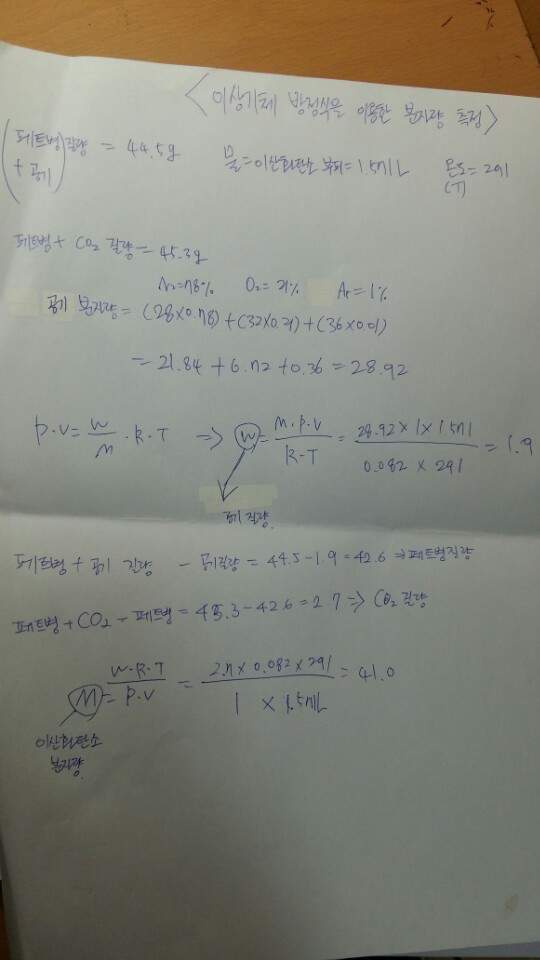 <이상기체 방정식을 이용한 분자량 측정>
(페트병 + 공기) 질량 = 44.5g 물=이산화탄소 부피=1.57L 온도(T)=291
페트병 + CO2 질량 = 45.3g
N2=78% O2=21% Ar=1%
공기 분자량 = (28×0.78)+(32×0.21)+(36×0.01)
= 21.84 + 6.72 + 0.36 = 28.92
P·V = W/M · R·T ⇒ W = M·P·V / R·T = 28.92×1×1.57 / 0.082×291 = 1.9
공기 질량
페트병 + 공기 질량 - 공기질량 = 44.5-1.9=42.6 ⇒페트병질량
페트병+CO2 - 페트병 = 45.3-42.6=2.7 ⇒ CO2 질량
M = W·R·T / P·V = 2.7×0.082×291 / 1 × 1.57L = 41.0
이산화탄소
분자량